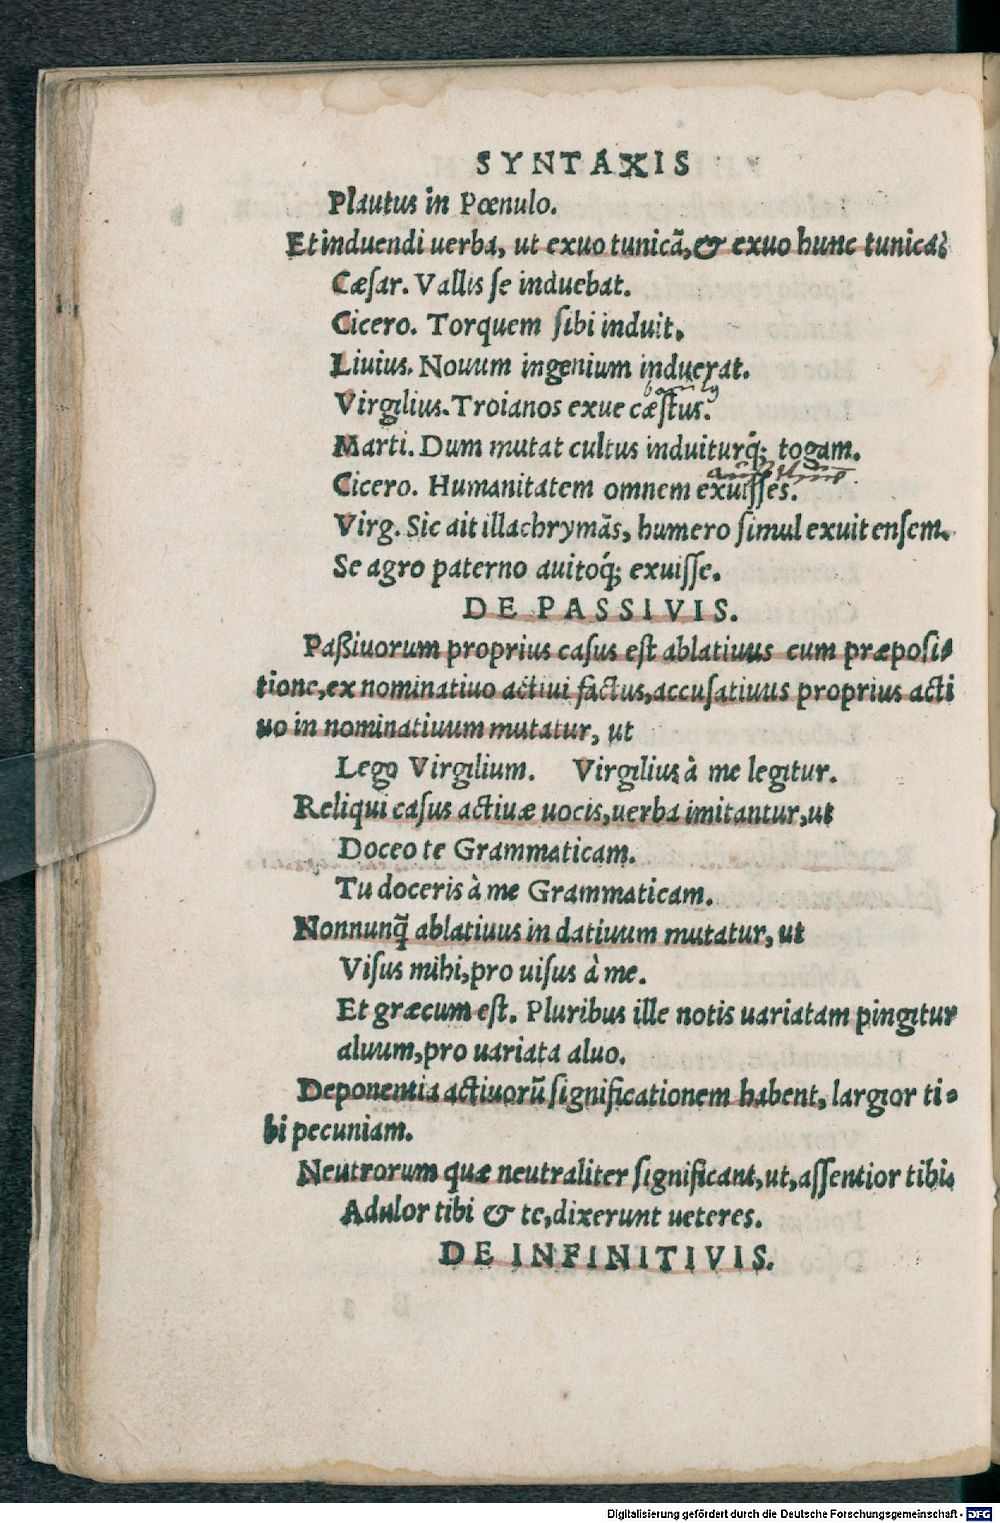 SYNTAXIS
Plautus in Pœnulo.
Et induendi uerba, ut exuo tunicā, & exuo hunc tunica:
Cæſar. Vallis ſe induebat.
Cicero. Torquem ſibi induit.
Liuius. Nouum ingenium induerat.
Virgilius. Troianos exue cæſtus.
Marti. Dum mutat cultus induiturq́; togam.
Cicero. Humanitatem omnem exuiſſes.
Virg. Sic ait illachrymās, humero ſimul exuit enſem.
Se agro paterno auitoq́; exuiſſe.
DE PASSIVIS.
Paßiuorum proprius caſus eſt ablatiuus cum præpoſi-
tione, ex nominatiuo actiui factus, accuſatiuus proprius acti
uo in nominatiuum mutatur, ut
Lego Virgilium. Virgilius à me legitur.
Reliqui caſus actiuæ uocis, uerba imitantur, ut
Doceo te Grammaticam.
Tu doceris à me Grammaticam.
Nonnunq̃ ablatiuus in datiuum mutatur, ut
Viſus mihi, pro uiſus à me.
Et græcum eſt. Pluribus ille notis uariatam pingitur
aluum, pro uariata aluo.
Deponentia actiuorū ſignificationem habent, largior ti-
bi pecuniam.
Neutrorum quæ neutraliter ſignificant, ut, aſſentior tibi.
Adulor tibi & te, dixerunt ueteres.
DE INFINITIVIS.
Digitalisierung gefördert durch die Deutsche Forschungsgemeinschaft - DFG